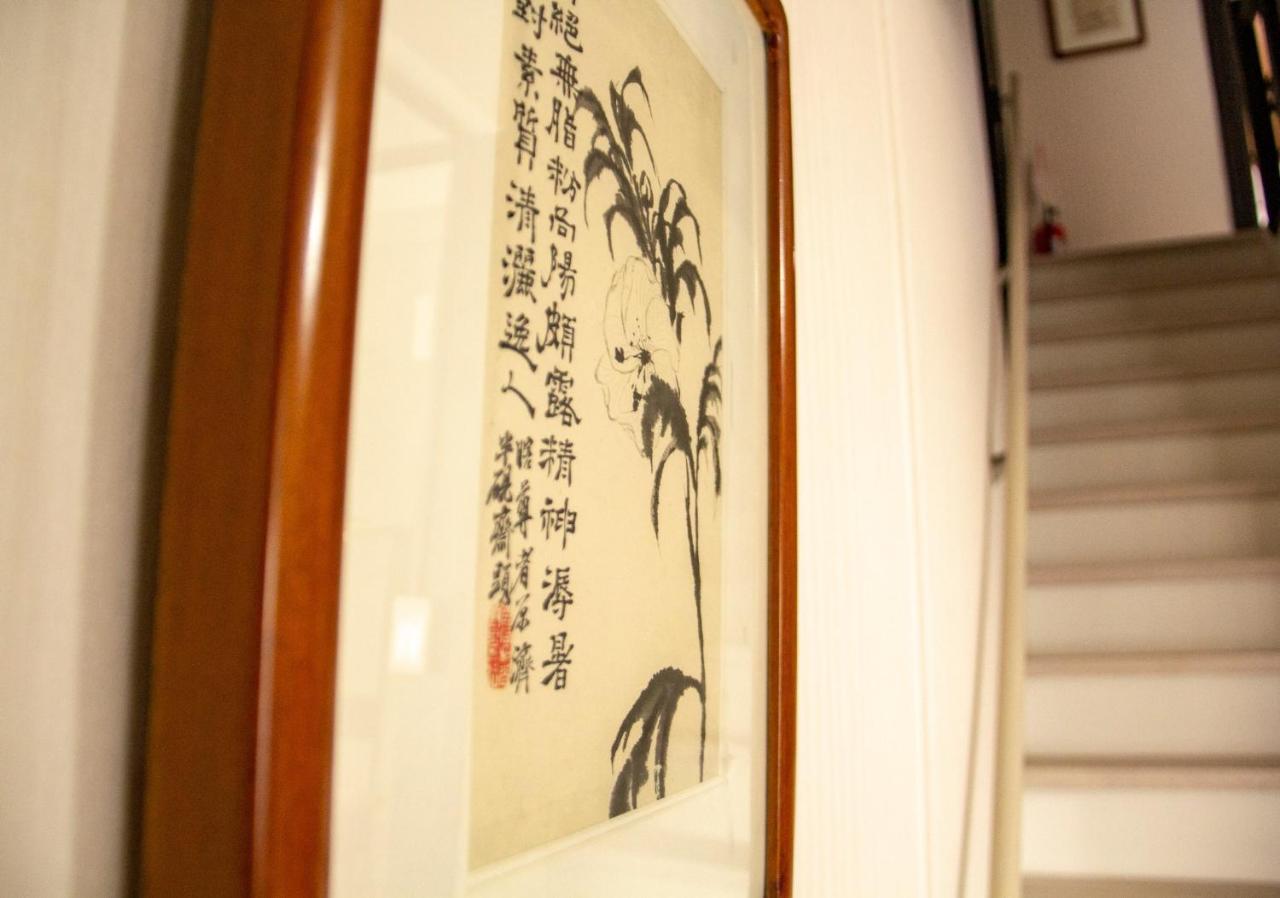 絕無脂粉向陽頗露精神溽暑
對素質清灑逸人
瞎尊者原濟
半硯齋題